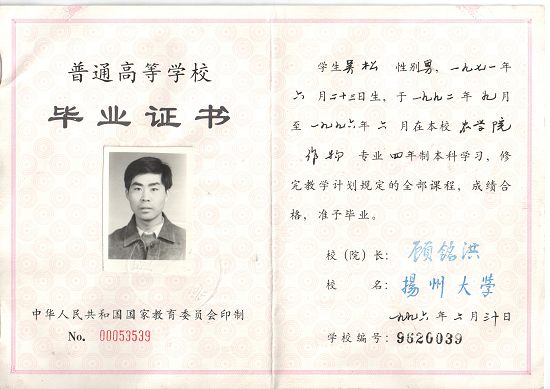 普通高等学校
毕业证书
中华人民共和国国家教育委员会印制
No. 00053539
学生吴松 性别男，一九七一年
六月二十三日生，于一九九二年九月
至一九九六年六月在本校农学院
作物 专业四年制本科学习，修
完教学计划规定的全部课程，成绩合
格，准予毕业。
校（院）长：顾铭洪
校 名：揚州大学
一九九六年六月三十日
学校编号：9620039